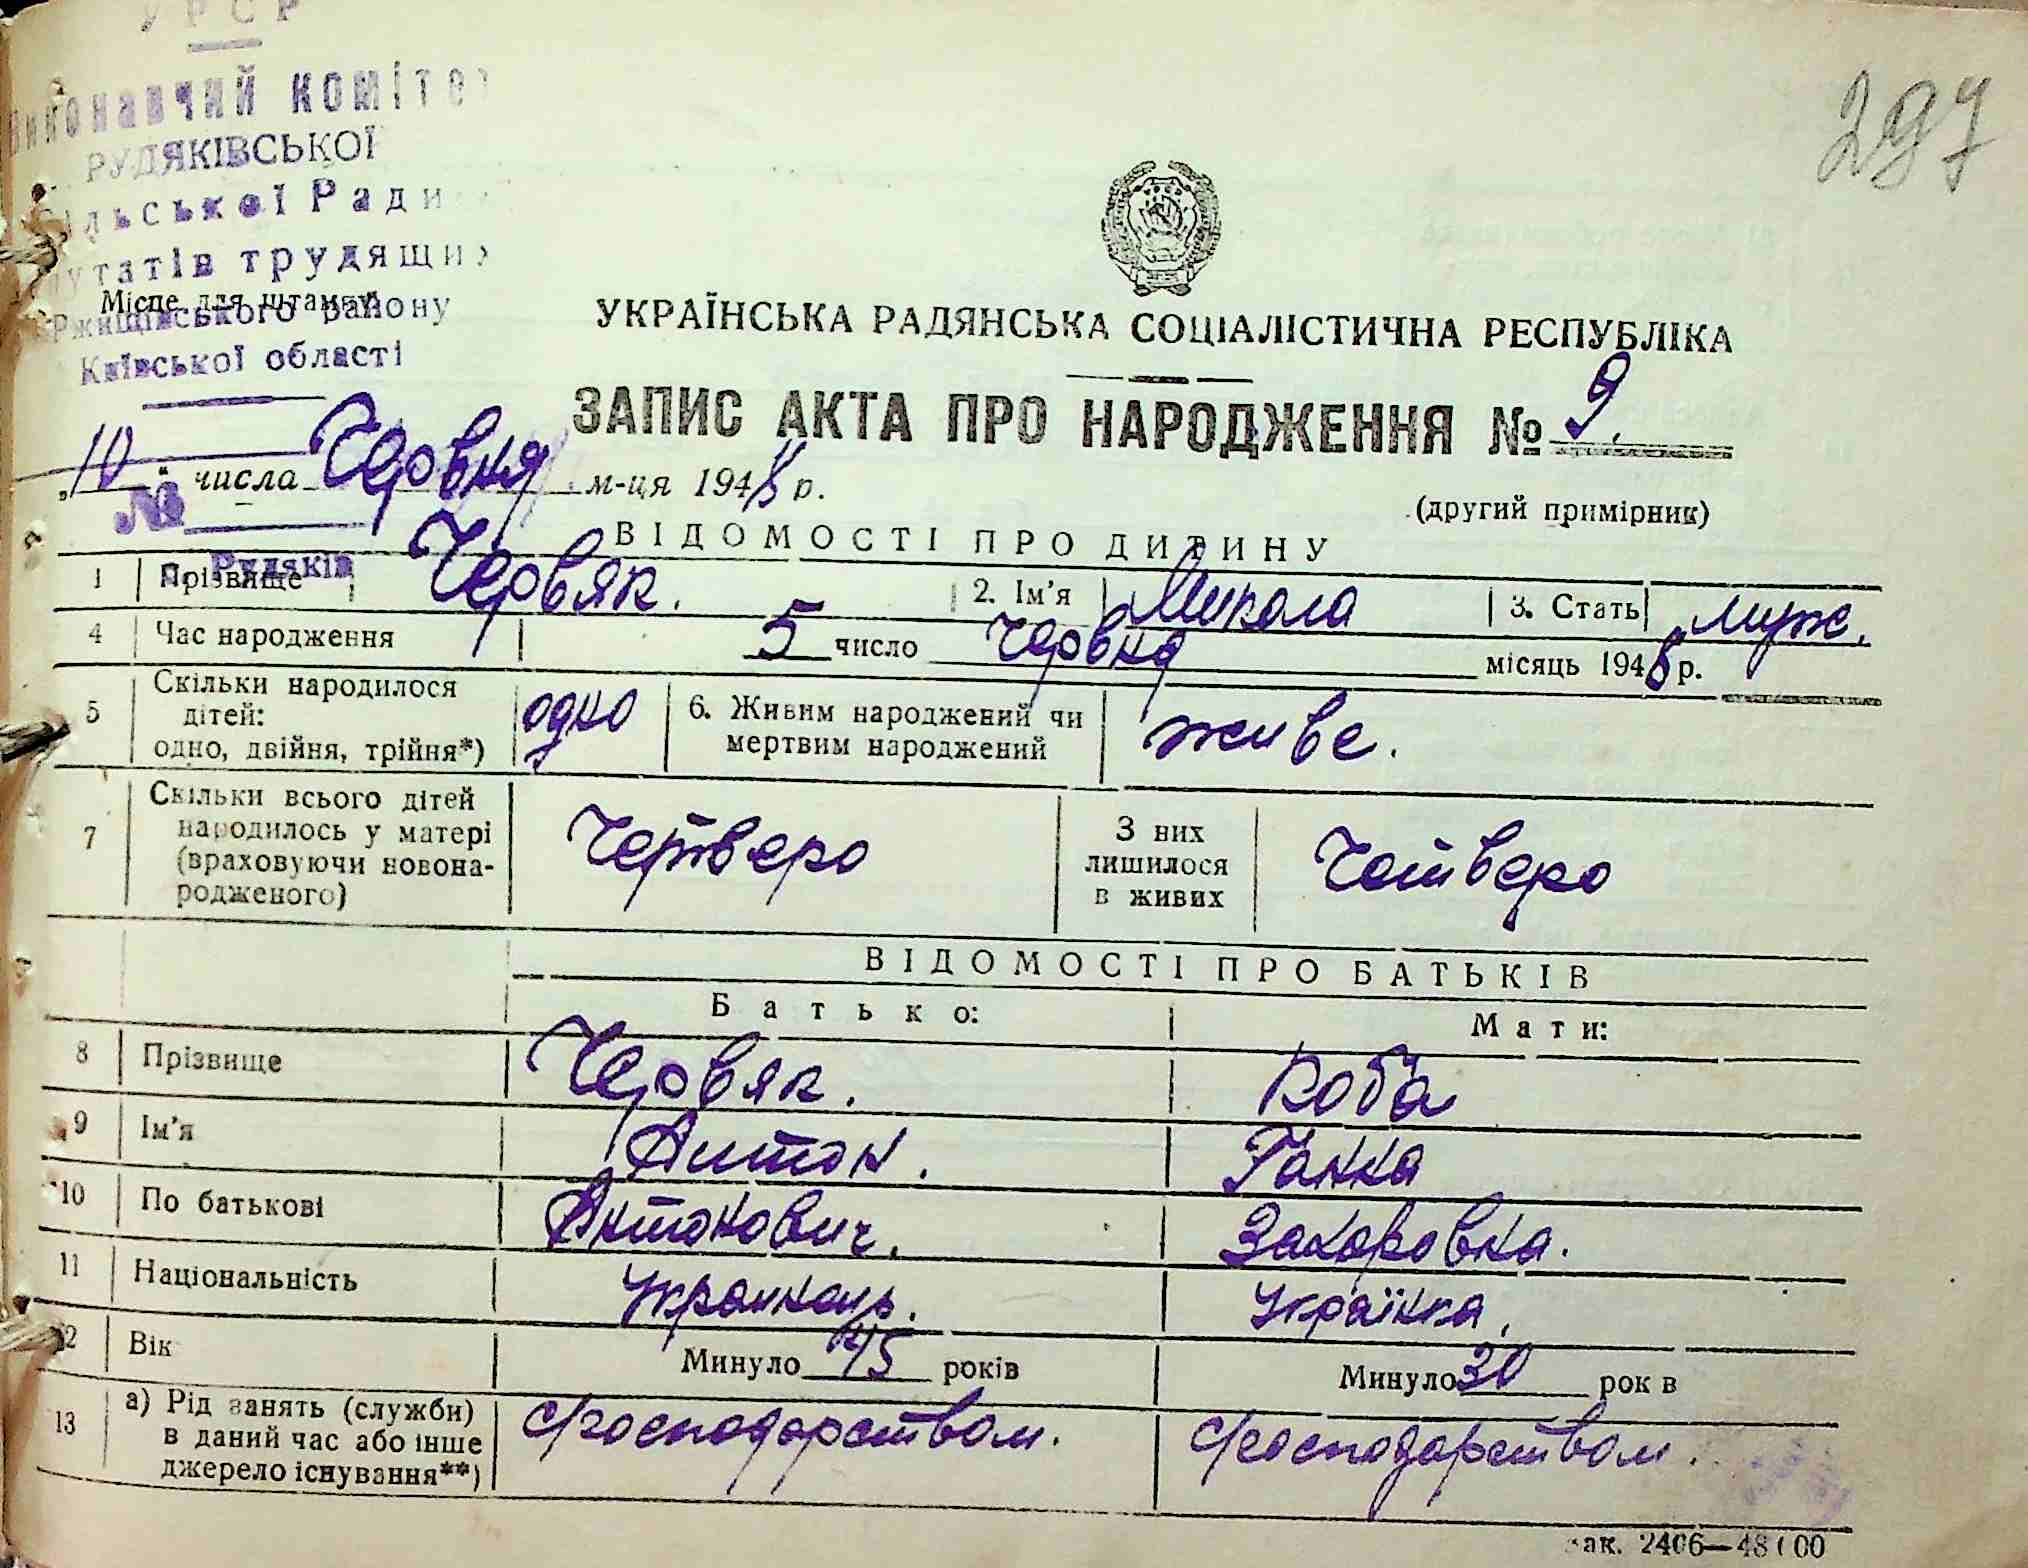 УРСР
Виконавчий комітет
РУДЯКІВСЬКОЇ
сільської Ради
депутатів трудящих
Місце для штампу
Ржищівського району
Київської області
297
УКРАЇНСЬКА РАДЯНСЬКА СОЦІАЛІСТИЧНА РЕСПУБЛІКА
ЗАПИС АКТА ПРО НАРОДЖЕННЯ № 9.
„10" числа Червня м-ця 1948 р.
(другий примірник)
№
с. Рудяків
ВІДОМОСТІ ПРО ДИТИНУ
1 Прізвище Червяк. 2. Ім'я Микола 3. Стать муж.
4 Час народження 5 число Червня місяць 1948 р.
5 Скільки народилося дітей: одно, двійня, трійня*) одно 6. Живим народжений чи мертвим народжений живе.
7 Скільки всього дітей народилось у матері (враховуючи новонародженого) Четверо З них лишилося в живих Четверо
ВІДОМОСТІ ПРО БАТЬКІВ
Батько: Мати:
8 Прізвище Червяк. Коба
9 Ім'я Антон. Ганна
10 По батькові Антонович. Захаровна.
11 Національність Украинець. Українка.
12 Вік Минуло 45 років Минуло 30 рок в
13 а) Рід занять (служби) в даний час або інше джерело існування**) с/господарством. с/господарством.
Зак. 2406—48